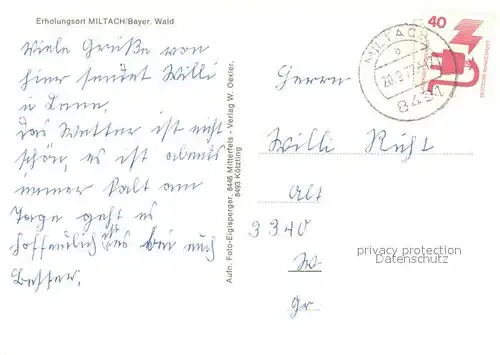 Erholungsort MILTACH/Bayer. Wald
Viele Grüße von
hier sendet Willi
u Lene.
Das Wetter ist nicht
schön, es ist abends
immer kalt am
Tage geht es
hoffentlich ist es bei euch
Besser.
Aufn. Foto-Eiglsperger, 8446 Mitterfels - Verlag W. Oexler,
8493 Kötzting
MILTACH
b
20.9.77
8491
40
DEUTSCHE BUNDESPOST
Herrn
Willi
Alt
3340
W
Gr
privacy protection
Datenschutz